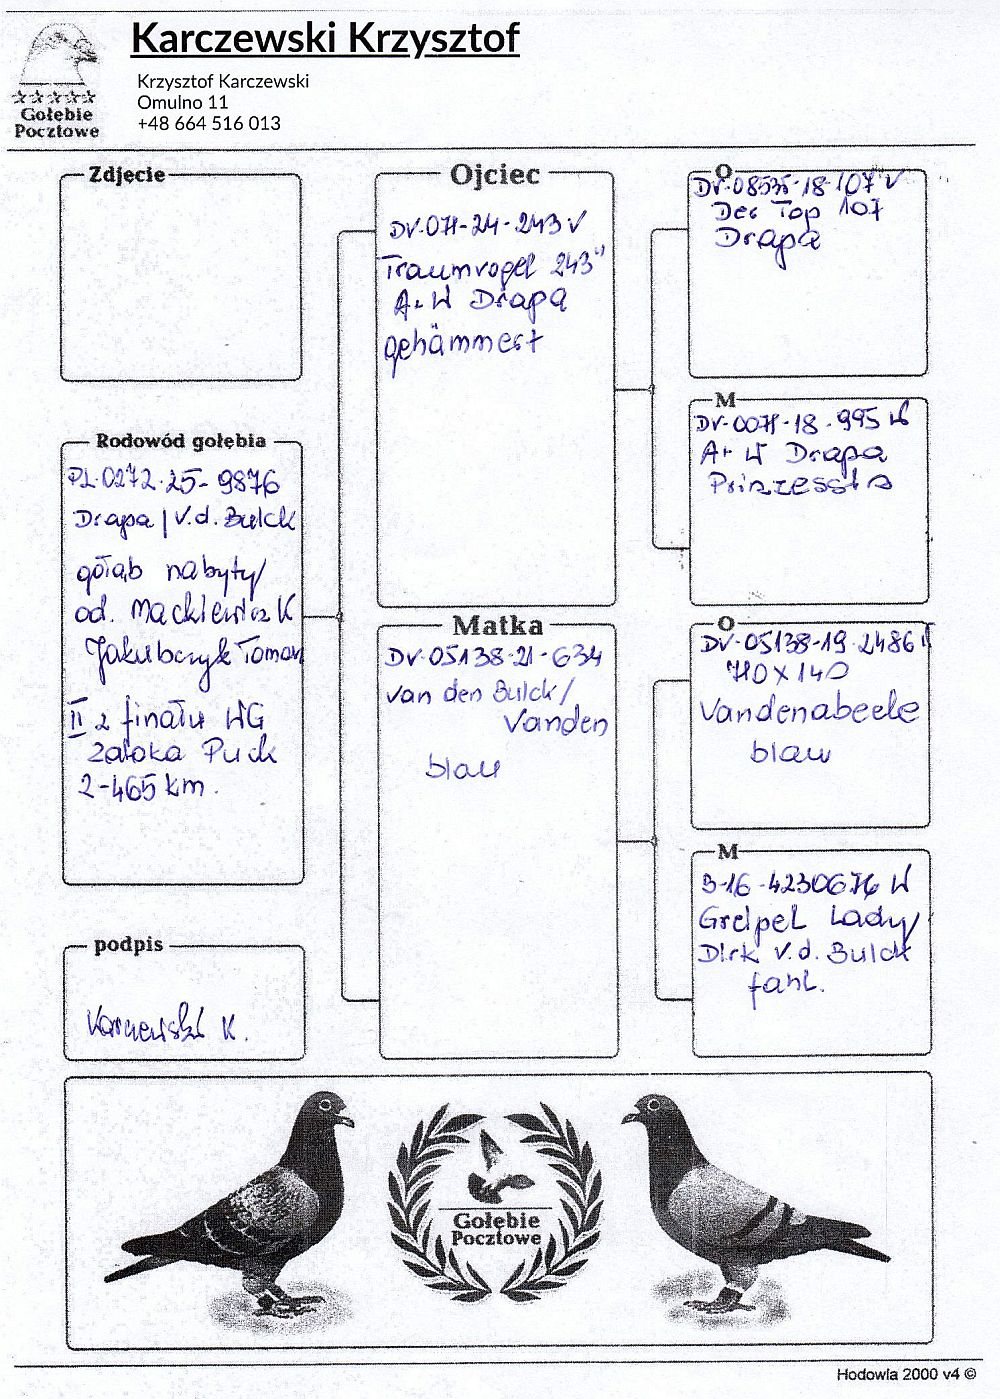 Karczewski Krzysztof
Krzysztof Karczewski
Omulno 11
+48 664 516 013
Gołębie
Pocztowe
Zdjęcie
Rodowód gołębia
PL-0272-25-9876
Drapa / V.d. Bulck
gołąb nabyty/
od. Mackiewicz K
Jakubczyk Toman
II z finału WG
Zatoka Puck
2-465 km.
podpis
Karczewski K.
Ojciec
DV-071-24-243 V
Traumvogel 243"
A+W Drapa
gehämmert
Matka
DV-05138-21-634
Van den Bulck/
Vanden
blau
O
DV-08535-18-107 V
Der Top 107
Drapa
M
DV-0071-18-995 W
A+W Drapa
Prinzessin
O
DV-05138-19-2486
710 x 140
Vandenabeele
blau
M
B-16-4230676 W
Greipel Lady/
Dirk v.d. Bulck
fahl.
Gołębie
Pocztowe
Hodowla 2000 v4 ©